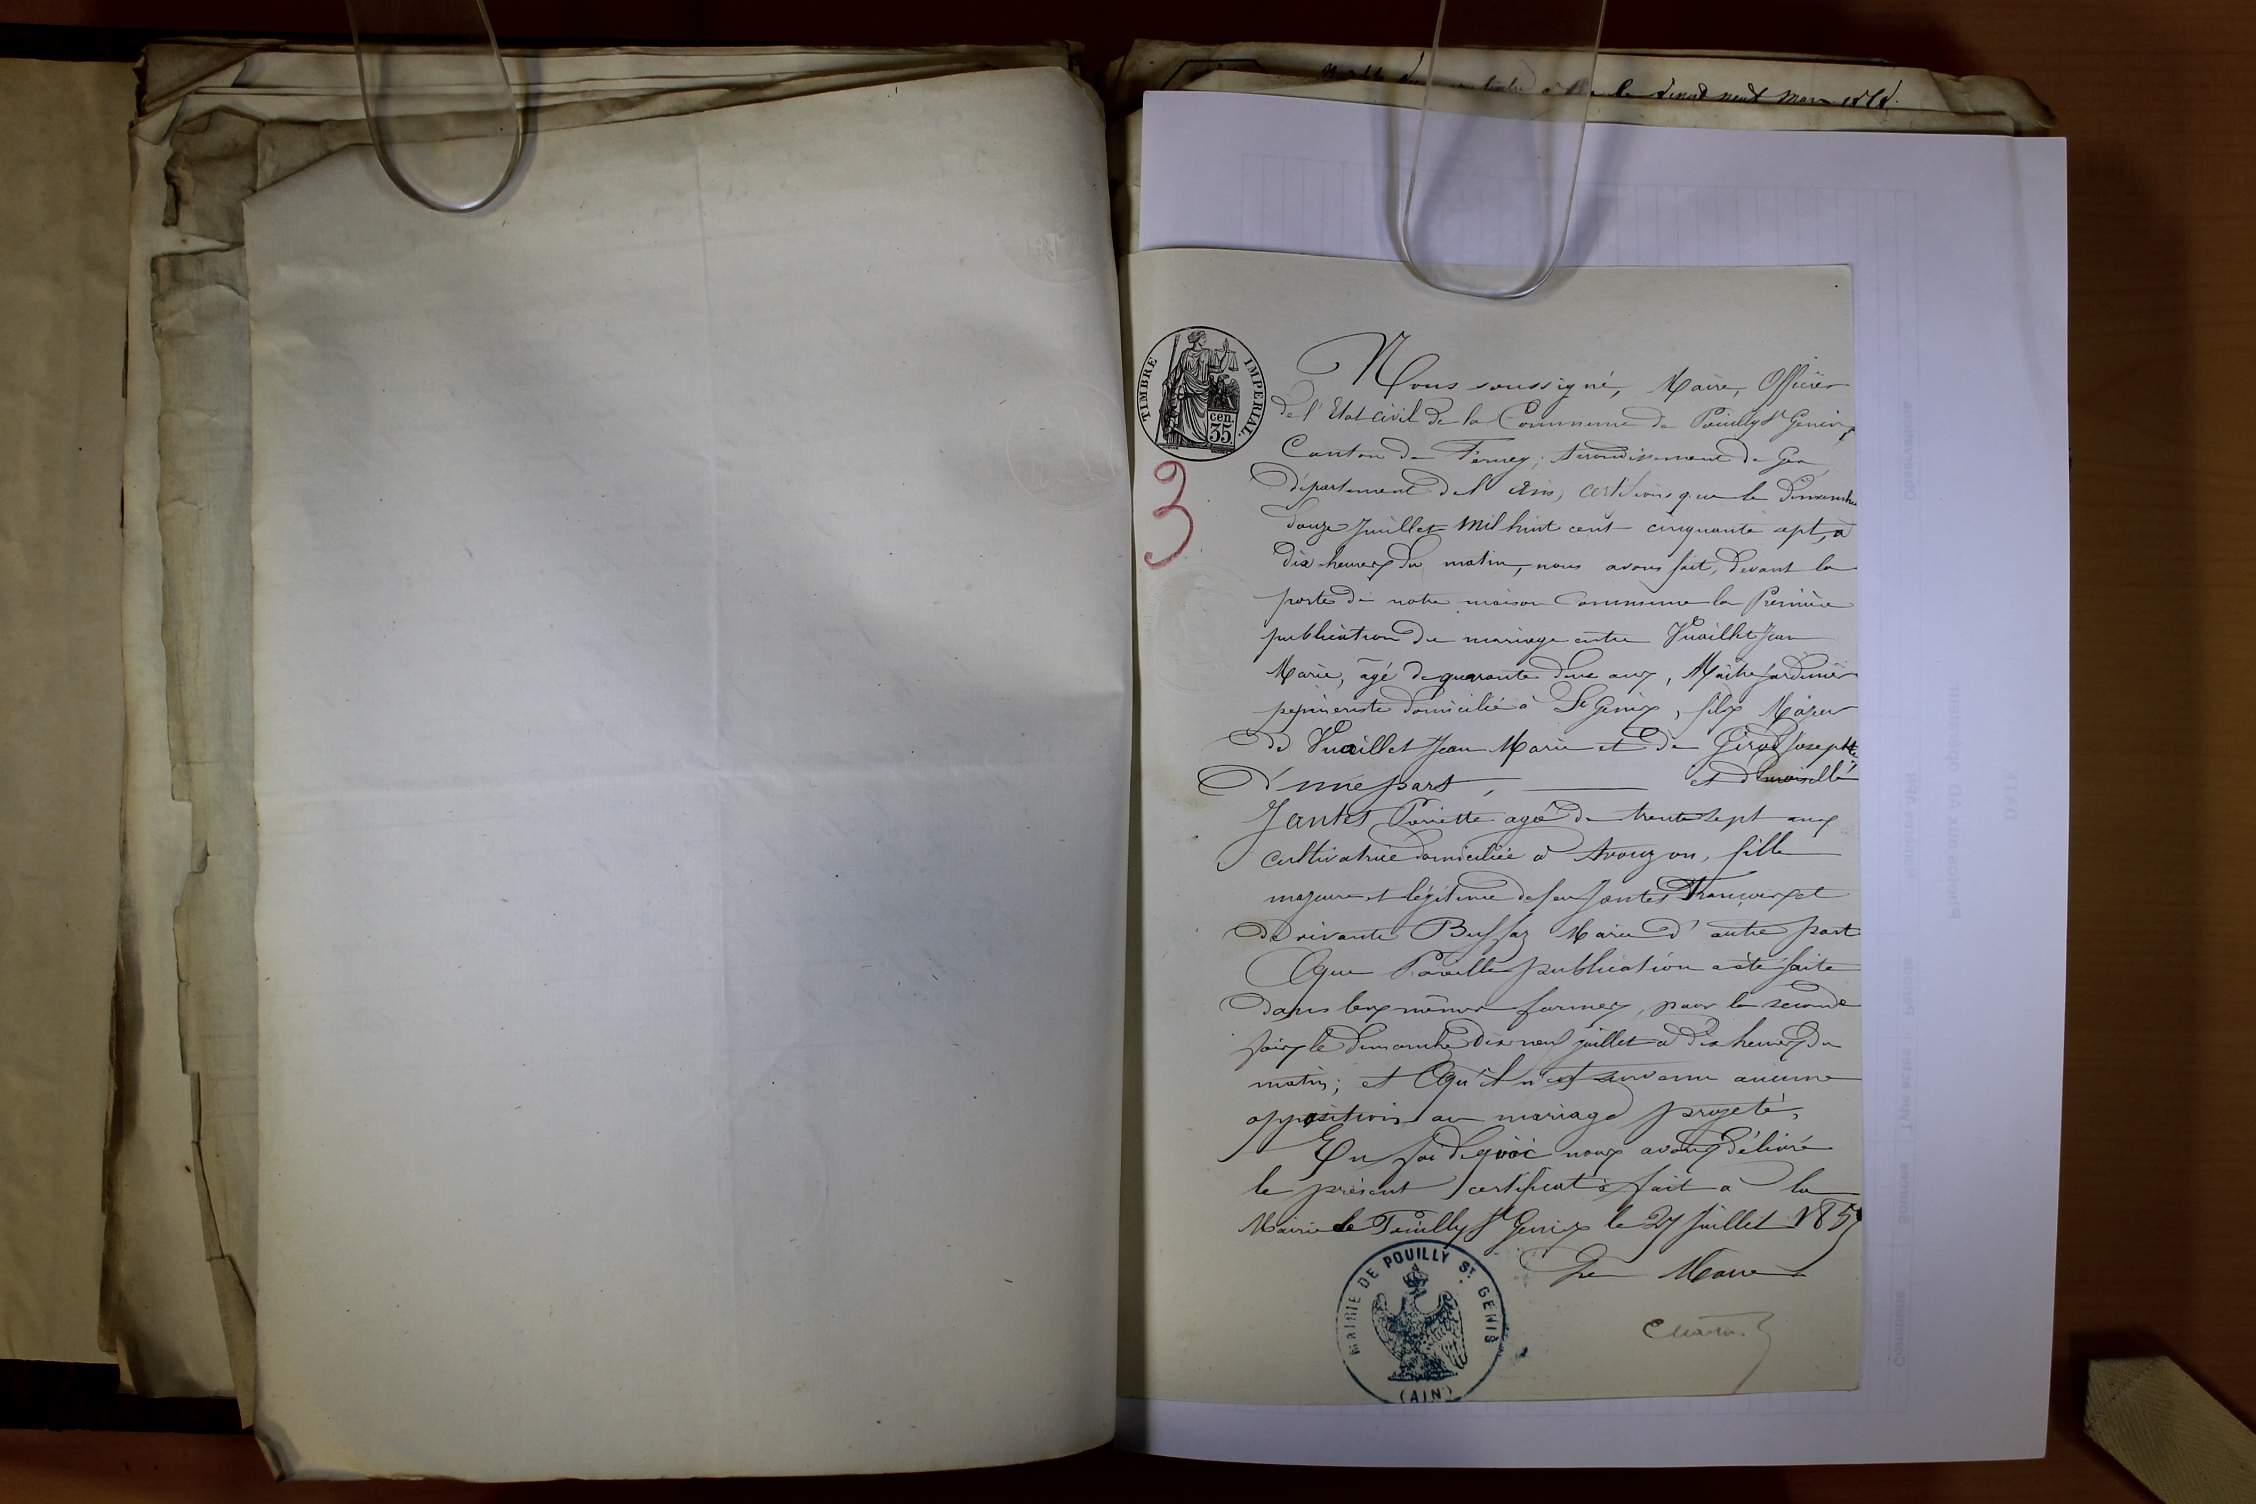 le vingt neuf mars
TIMBRE IMPERIAL.
cen.
35
3
Nous soussigné, Maire, Officier
de l'Etat civil de la Commune de Pouilly St Genix
Canton de Ferney, Arrondissement de Gex,
département de l'Ain, certifions que le Dimanche
douze Juillet Mil huit cent cinquante sept, à
dix heures du matin, nous avons fait, devant la
porte de notre maison Commune la Première
publication du mariage entre Vuaillet Jean
Marie, agé de quarante deux ans, Maître Jardinier
pepinieriste domicilié à St Genix, fils Majeur
de Vuaillet Jean Marie et de Girod Josephte
d'une part, et demoiselle
Jantet Pierrette agée de trente sept ans
cultivatrice domiciliée à Avouzon, fille
majeure et légitime de feu Jantet François et
de vivante Buffaz Marie d'autre part
Que Pareille publication a été faite
dans les mêmes formes, pour la seconde
fois le dimanche dix neuf juillet à dix heures du
matin; et Qu'il n'est survenu aucune
opposition au mariage projeté,
En foi de quoi nous avons délivré
le présent certificat fait a la
Mairie de Pouilly St Genix le 27 Juillet 1857
Le Maire
MAIRIE DE POUILLY ST. GENIS
(AIN)